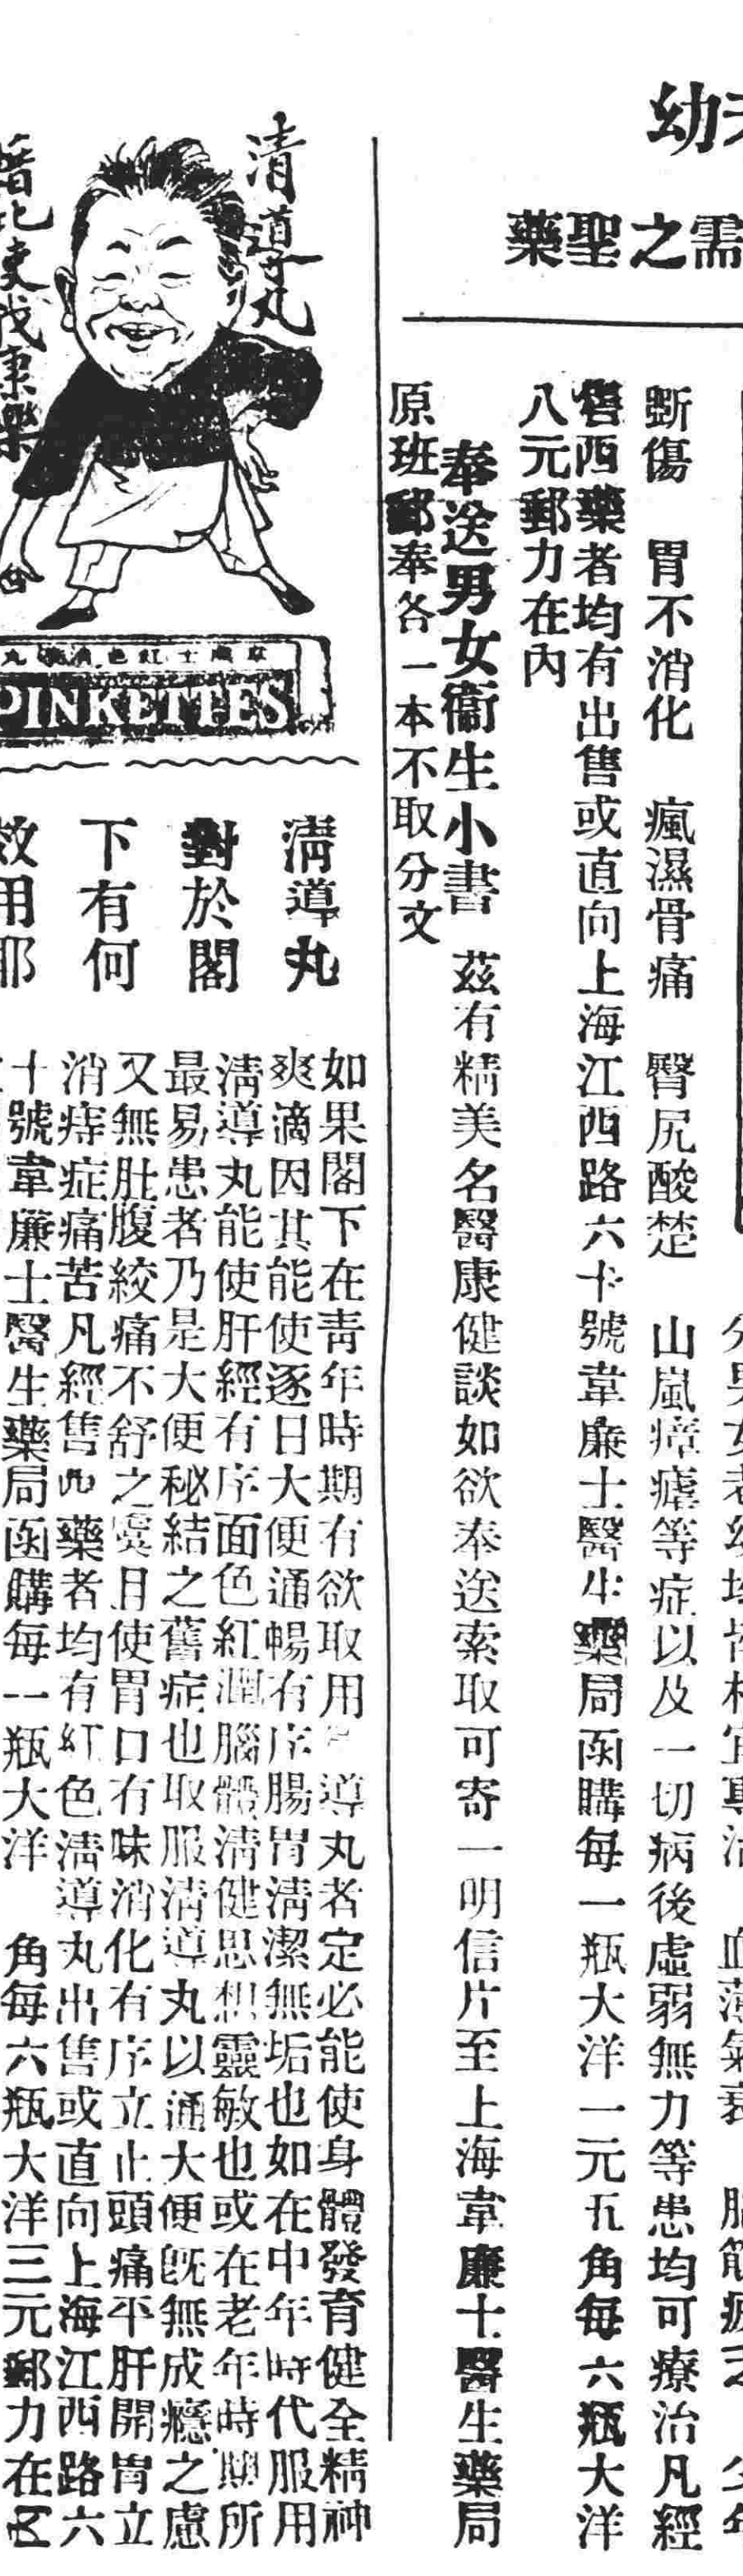 幼
需之聖藥
斷傷　胃不消化　瘋濕骨痛　臀尻酸楚　山嵐瘴瘧等症以及一切病後虛弱無力等患均可療治凡經
售西藥者均有出售或直向上海江西路六十號韋廉士醫生藥局函購每一瓶大洋一元五角每六瓶大洋
八元郵力在內
奉送男女衞生小書　茲有精美名醫康健談如欲奉送索取可寄一明信片至上海韋廉士醫生藥局
原班郵奉各一本不取分文
清導丸
使我康樂
PINKETTES
淸導丸
對於閣
下有何
效用耶
如果閣下在靑年時期有欲取用導丸者定必能使身體發育健全精神
爽適因其能使逐日大便通暢有序腸胃淸潔無垢也如在中年時代服用
淸導丸能使肝經有序面色紅潤腦體淸健思想靈敏也或在老年時期所
最易患者乃是大便秘結之舊症也取服淸導丸以通大便旣無成癮之慮
又無肚腹絞痛不舒之虞且使胃口有味消化有序立止頭痛平肝開胃立
消痔症痛苦凡經售西藥者均有紅色淸導丸出售或直向上海江西路六
十號韋廉士醫生藥局函購每一瓶大洋　角每六瓶大洋三元郵力在內